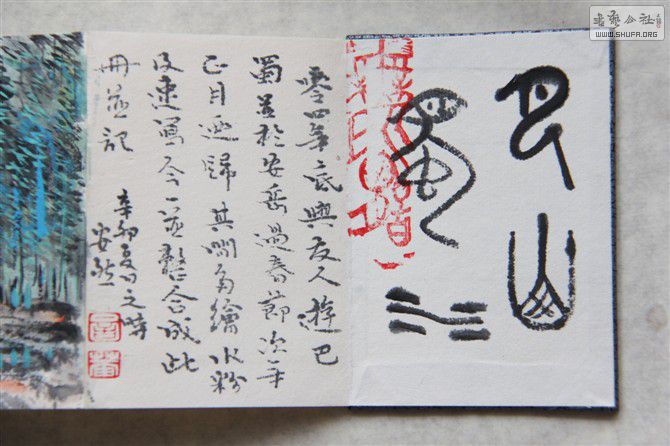 巴山
蜀水
零四年底與友人遊巴
蜀並於安岳過春節次年
正月歸其間繪水粉
及速寫今一並整合成此
冊並記
辛卯日之時
安然
書藝公社
WWW.SHUFA.ORG